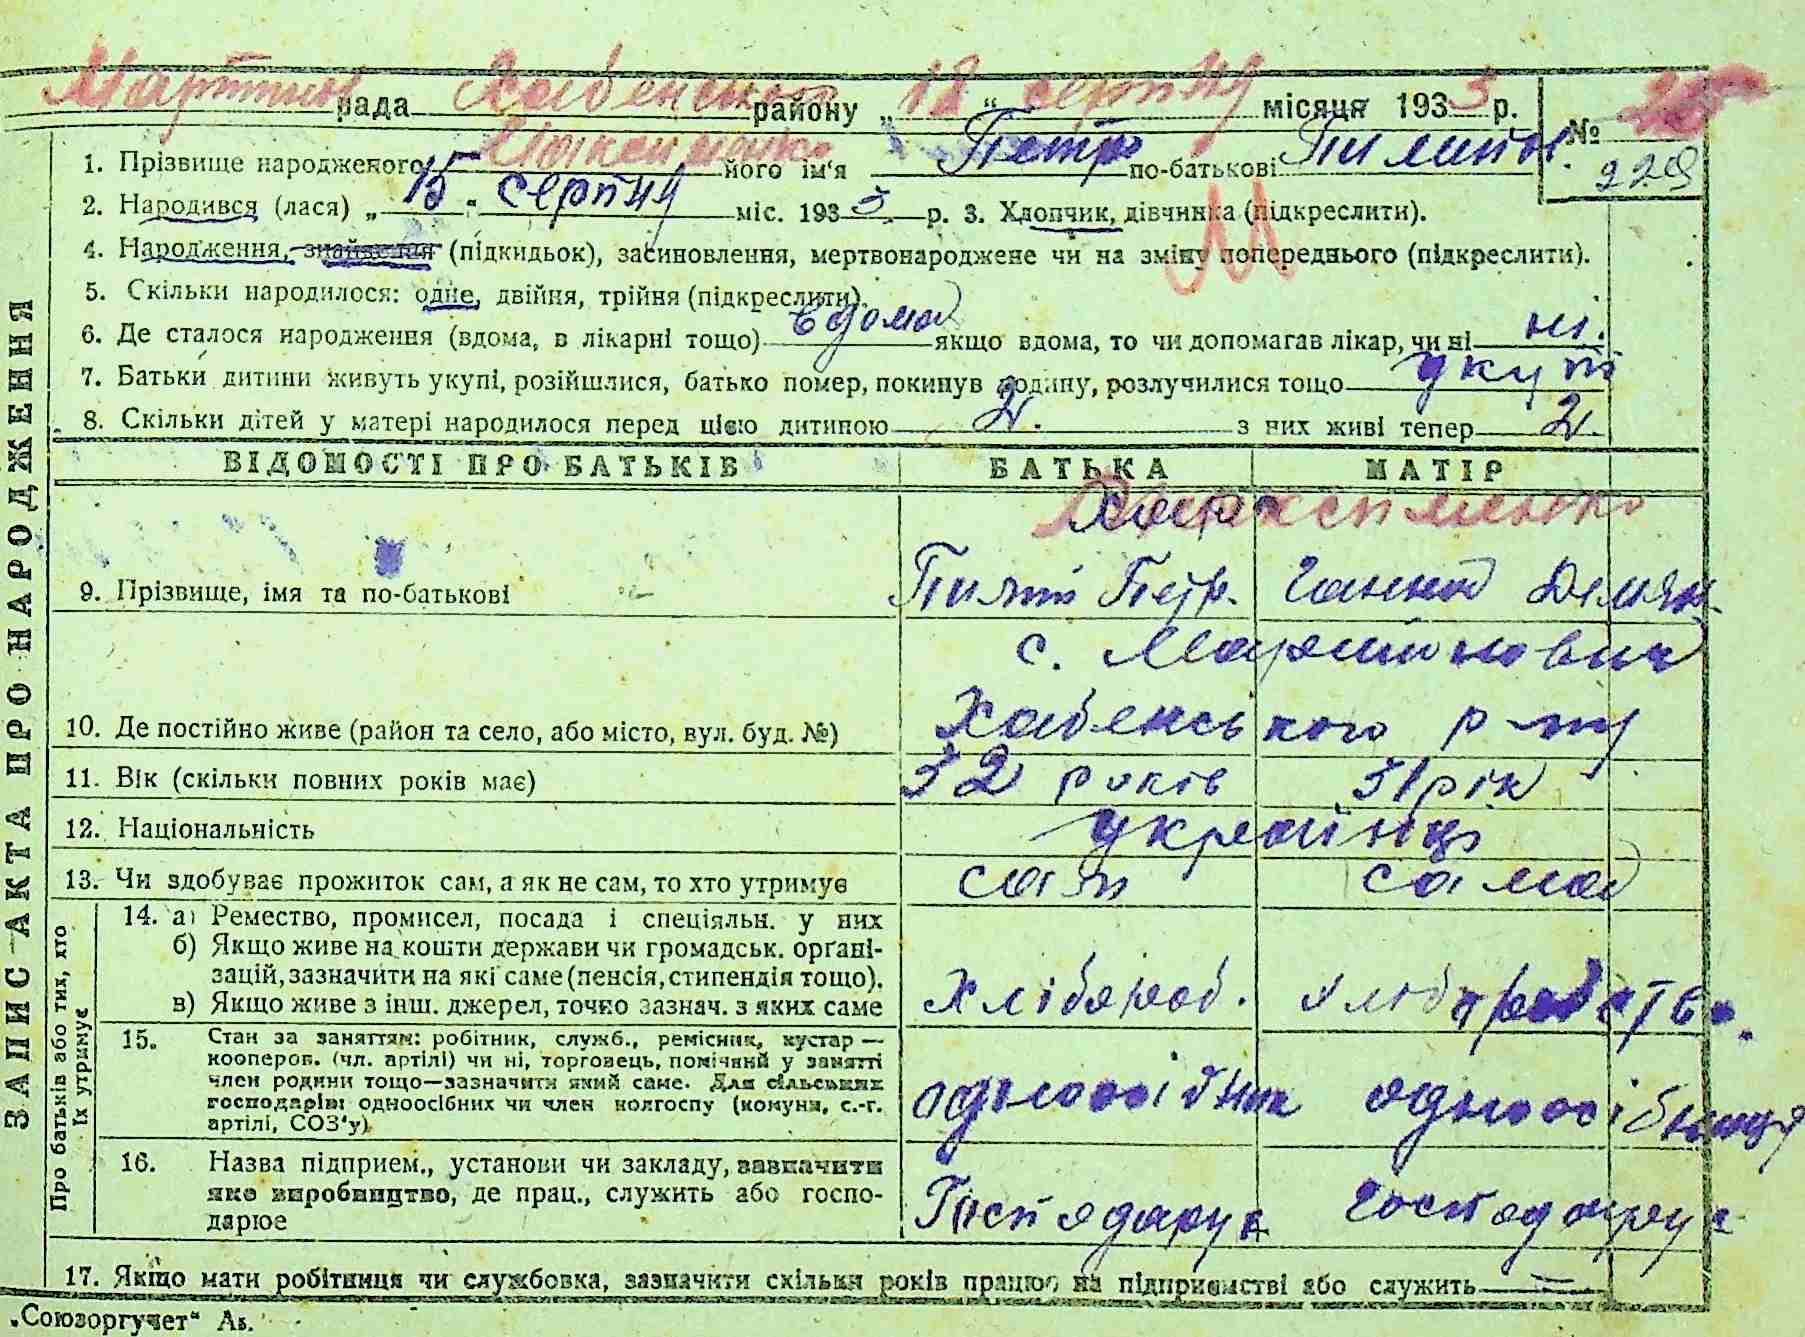 ЗАПИС АКТА ПРО НАРОДЖЕННЯ
Мартинов рада Хабенського району „18“ серпня місяця 1933 р. №
229
1. Прізвище народженого його ім'я Петро по-батькові Пилипов.
2. Народився (лася) „15“ серпня міс. 1933 р. 3. Хлопчик, дівчинка (підкреслити).
4. Народження, знайдення (підкидьок), засиновлення, мертвонароджене чи на зміну попереднього (підкреслити).
5. Скільки народилося: одне, двійня, трійня (підкреслити).
6. Де сталося народження (вдома, в лікарні тощо) вдома якщо вдома, то чи допомагав лікар, чи ні ні.
7. Батьки дитини живуть укупі, розійшлися, батько помер, покинув родину, розлучилися тощо укупі
8. Скільки дітей у матері народилося перед цією дитиною 2. з них живі тепер 2.
ВІДОМОСТІ ПРО БАТЬКІВ БАТЬКА МАТІР
9. Прізвище, імя та по-батькові Пилип Петр. Ганна Демян.
с. Мартинович
10. Де постійно живе (район та село, або місто, вул. буд. №) Хабенського р-ну
11. Вік (скільки повних років має) 32 років 31 рік
12. Національність українці
13. Чи здобуває прожиток сам, а як не сам, то хто утримує сам сама
Про батьків або тих, хто їх утримує
14. а) Ремество, промисел, посада і спеціяльн. у них
б) Якщо живе на кошти держави чи громадськ. орґані-
зацій, зазначити на які саме (пенсія, стипендія тощо).
в) Якщо живе з інш. джерел, точно зазнач. з яких саме хлібороб. хліборобство.
15. Стан за заняттям: робітник, служб., ремісник, кустар —
кооперов. (чл. артілі) чи ні, торговець, помічний у занятті
член родини тощо—зазначити який саме. Для сільських
господарів: одноосібних чи член колгоспу (комуни, с.-г.
артілі, СОЗ'у) одноосібник одноосібниця
16. Назва підприєм., установи чи закладу, зазначити
яке виробництво, де прац., служить або госпо-
дарює Господарує господарує
17. Якщо мати робітниця чи службовка, зазначити скільки років працює на підприємстві або служить —
„Союзоргучет“ Ав.